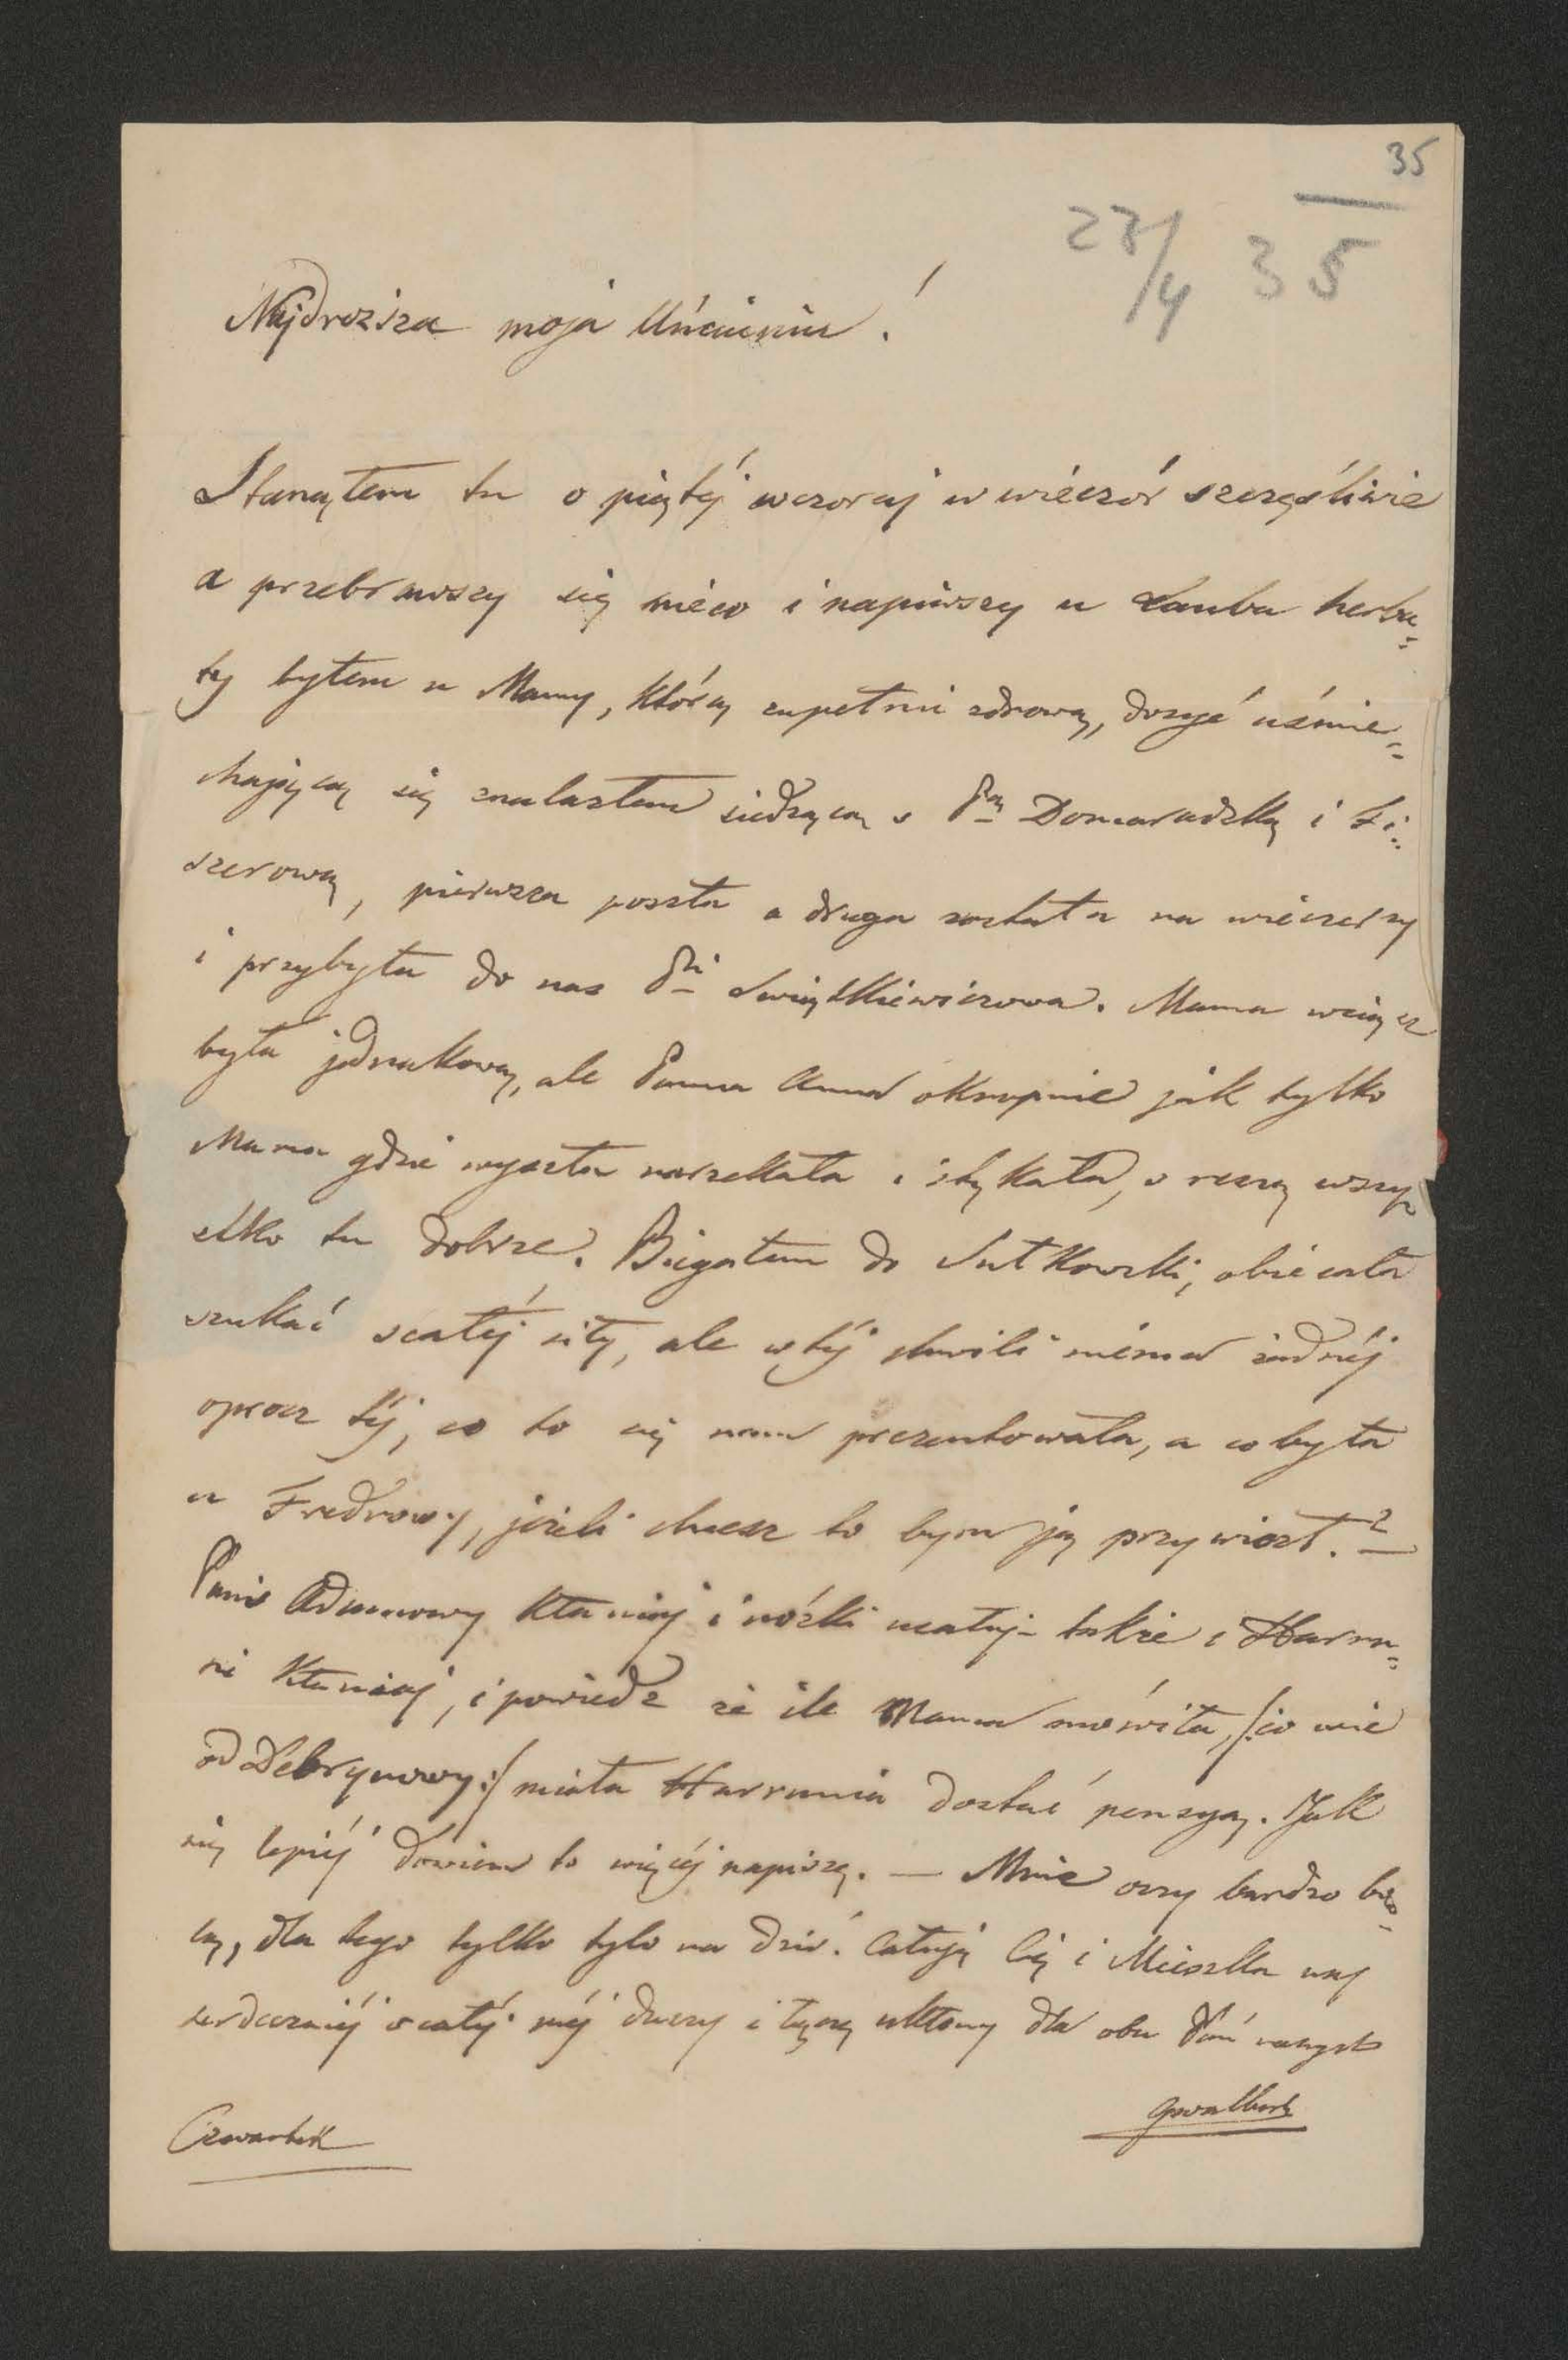 35
27/4 35
Najdrozsza moja Uńciuniu!
Stanąłem tu o piątéj wczoraj w wieczór szczęśliwie
a przebrawszy się nieco i napiwszy u Lauba herba=
ty byłem u Mamy, którą zupełnie zdrową, dosyć uśmie=
chającą się znalazłem siedzącą s Pą Domaradzką i Fi=
szerową, pierwsza poszła a druga została na wieczerzy
i przybyła do nas Pni Świątkiewiczowa. Mama wciąż
była jednakową, ale Panna Anna okropnie jak tylko
Mama gdzie wyszła narzekała i stękała, s resztą wszy=
stko tu dobrze. Biegałem do Sutkowski, obiecała
szukać s całéj siły, ale w téj chwili niéma żadnéj
oprocz téj, co to się nam prezentowała, a co była
u Fredrowy, jeżeli chcesz to bym ją przywiozł.?—
Pani Adamowy kłaniaj i nóżki ucałuj— także i Harru=
ni kłaniaj, i powiedz że ile Mama mówiła, /:co wie
od Debrynowy:/ miała Harrunia dostać pensyą. Jak
się lepiéj dowiem to więcéj napiszę. — Mnie oczy bardzo bo=
lą, dla tego tylko tylo na dziś. Całuję Cię i Mieszka naj
serdeczniéj s całéj méj duszy i łączę ukłony dla obu Pań naszych
Gwalbert
Czwartek